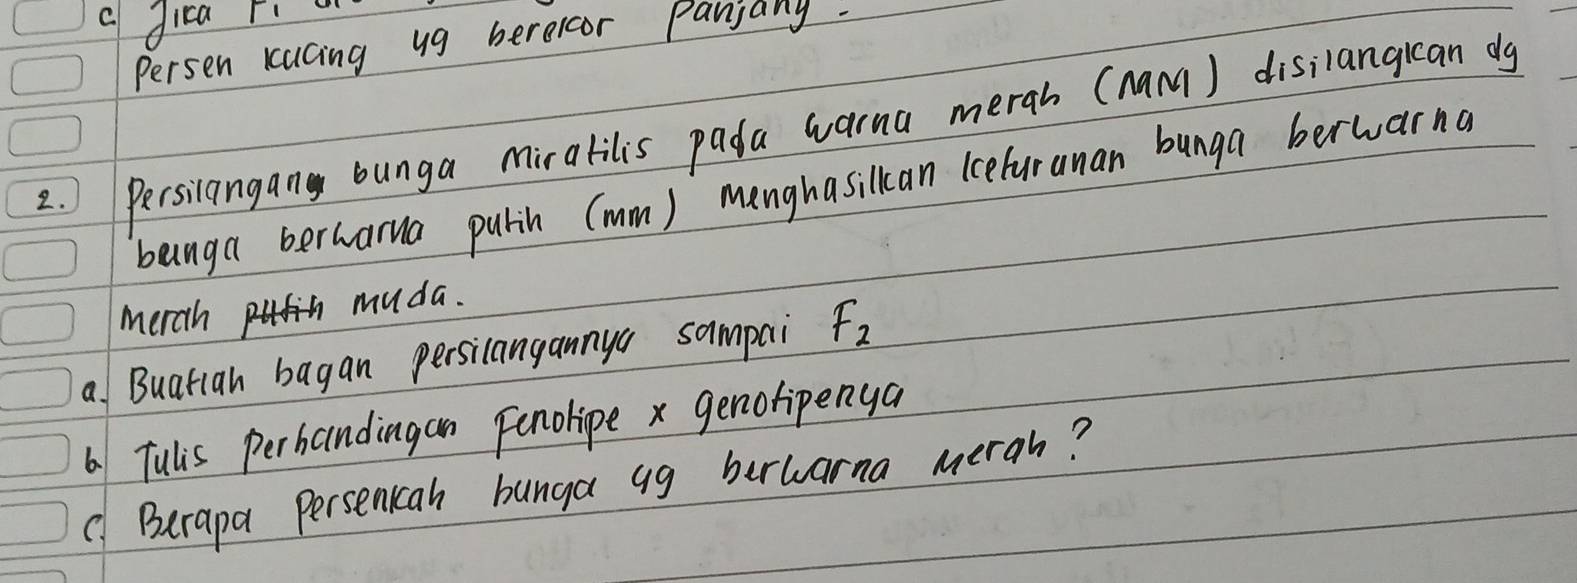 c Jika F1
Persen kucing yg berekor panjang.
2. Persilangang bunga Miratilis pada warna merah (MM) disilangkan dg
bunga berwarna putih (mm) menghasilkan keturunan bunga berwarna
Merah putih muda.
a. Buatlah bagan persilangannya sampai F2
b Tulis perbandingan Fenotipe x genotipenya
c. Berapa Persenkah bunga yg berwarna Merah?